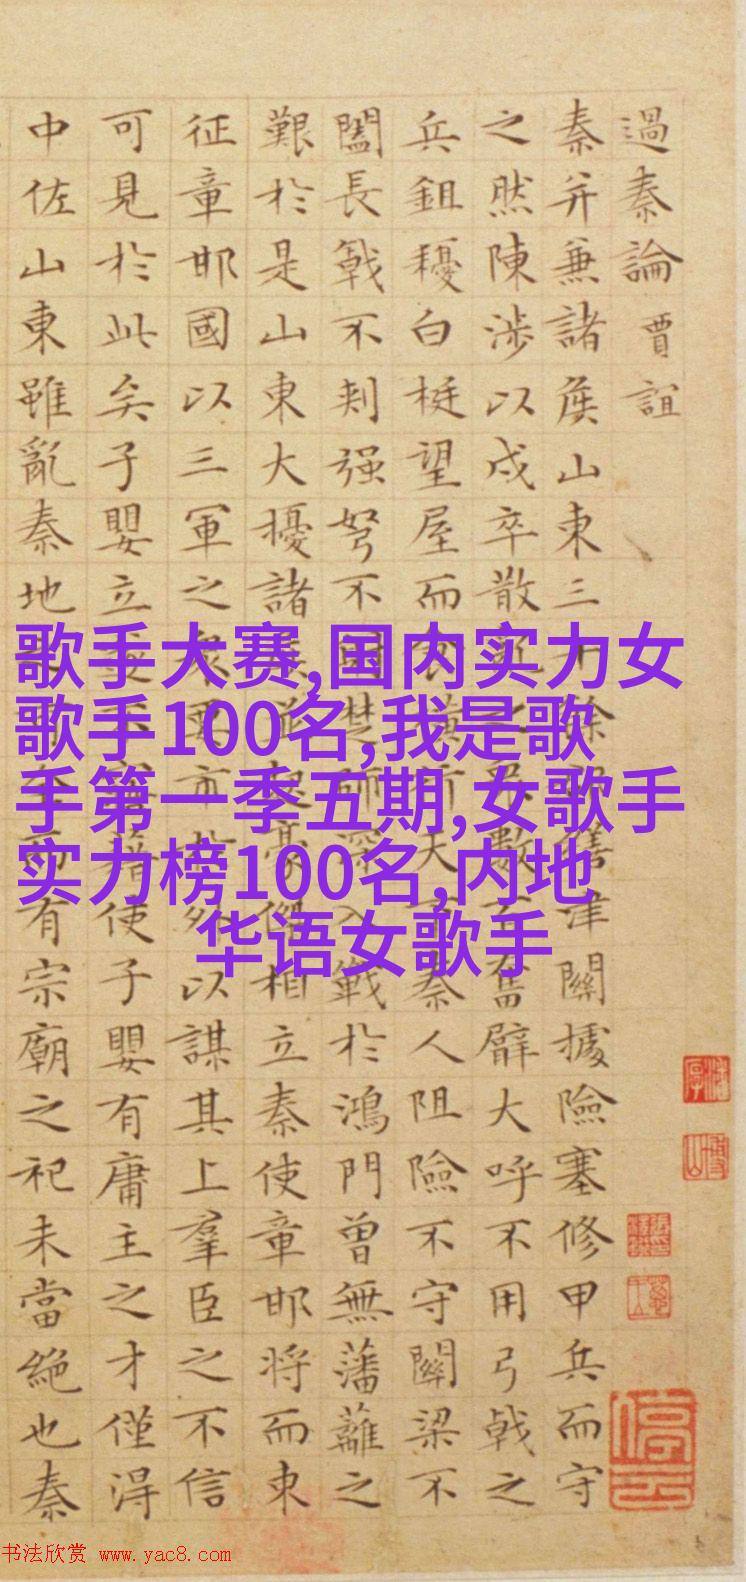 過秦論 賈誼
秦并兼諸侯山東三餘繕津關據險塞修甲兵而守
之然陳涉以戍卒散之數百奮臂大呼不用弓戟之
兵鉏耰白梃望屋而橫行天下秦人阻險不守關梁不
闔長戟不刺强弩不楚師深入戰於鴻門曾無藩籬之
艱於是山東大擾諸侯並起豪傑相立秦使章邯將而東
征章邯國以三軍之衆要市於外以謀其上羣臣之不信
可見於此矣子嬰立遂不藉使子嬰有庸主之才僅得
中佐山東雖亂秦地而有宗廟之祀未當絕也秦
歌手大赛,国内实力女
歌手100名,我是歌
手第一季五期,女歌手
实力榜100名,内地
华语女歌手
书法欣赏 www.yac8.com